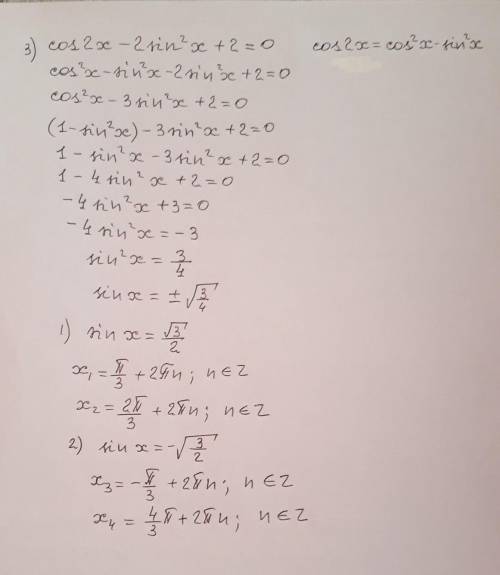 3) cos2x - 2sin²x + 2 = 0 cos2x = cos²x - sin²x
cos²x - sin²x - 2sin²x + 2 = 0
cos²x - 3sin²x + 2 = 0
(1 - sin²x) - 3sin²x + 2 = 0
1 - sin²x - 3sin²x + 2 = 0
1 - 4sin²x + 2 = 0
-4sin²x + 3 = 0
-4sin²x = -3
sin²x = 3/4
sinx = ±√(3/4)
1) sinx = √3/2
x₁ = π/3 + 2πn; n∈Z
x₂ = 2π/3 + 2πn; n∈Z
2) sinx = -√(3/2)
x₃ = -π/3 + 2πn; n∈Z
x₄ = 4/3 π + 2πn; n∈Z